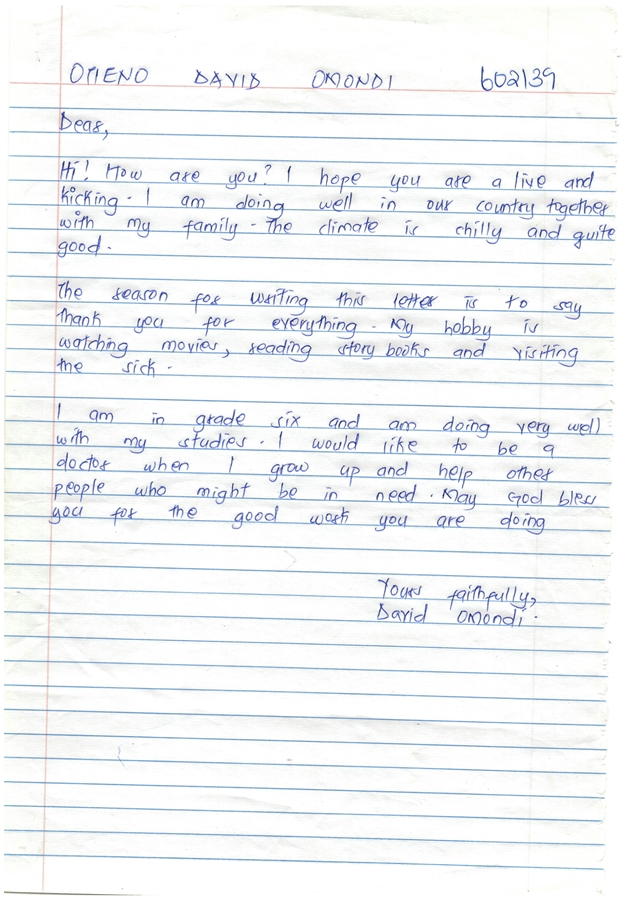 OTIENO DAVID OMONDI 602139
Dear,
Hi! How are you? I hope you are a live and
kicking. I am doing well in our country together
with my family. The climate is chilly and quite
good.
The reason for writing this letter is to say
thank you for everything. My hobby is
watching movies, reading story books and visiting
the sick.
I am in grade six and am doing very well
with my studies. I would like to be a
doctor when I grow up and help other
people who might be in need. May God bless
you for the good work you are doing
Yours faithfully,
David Omondi.